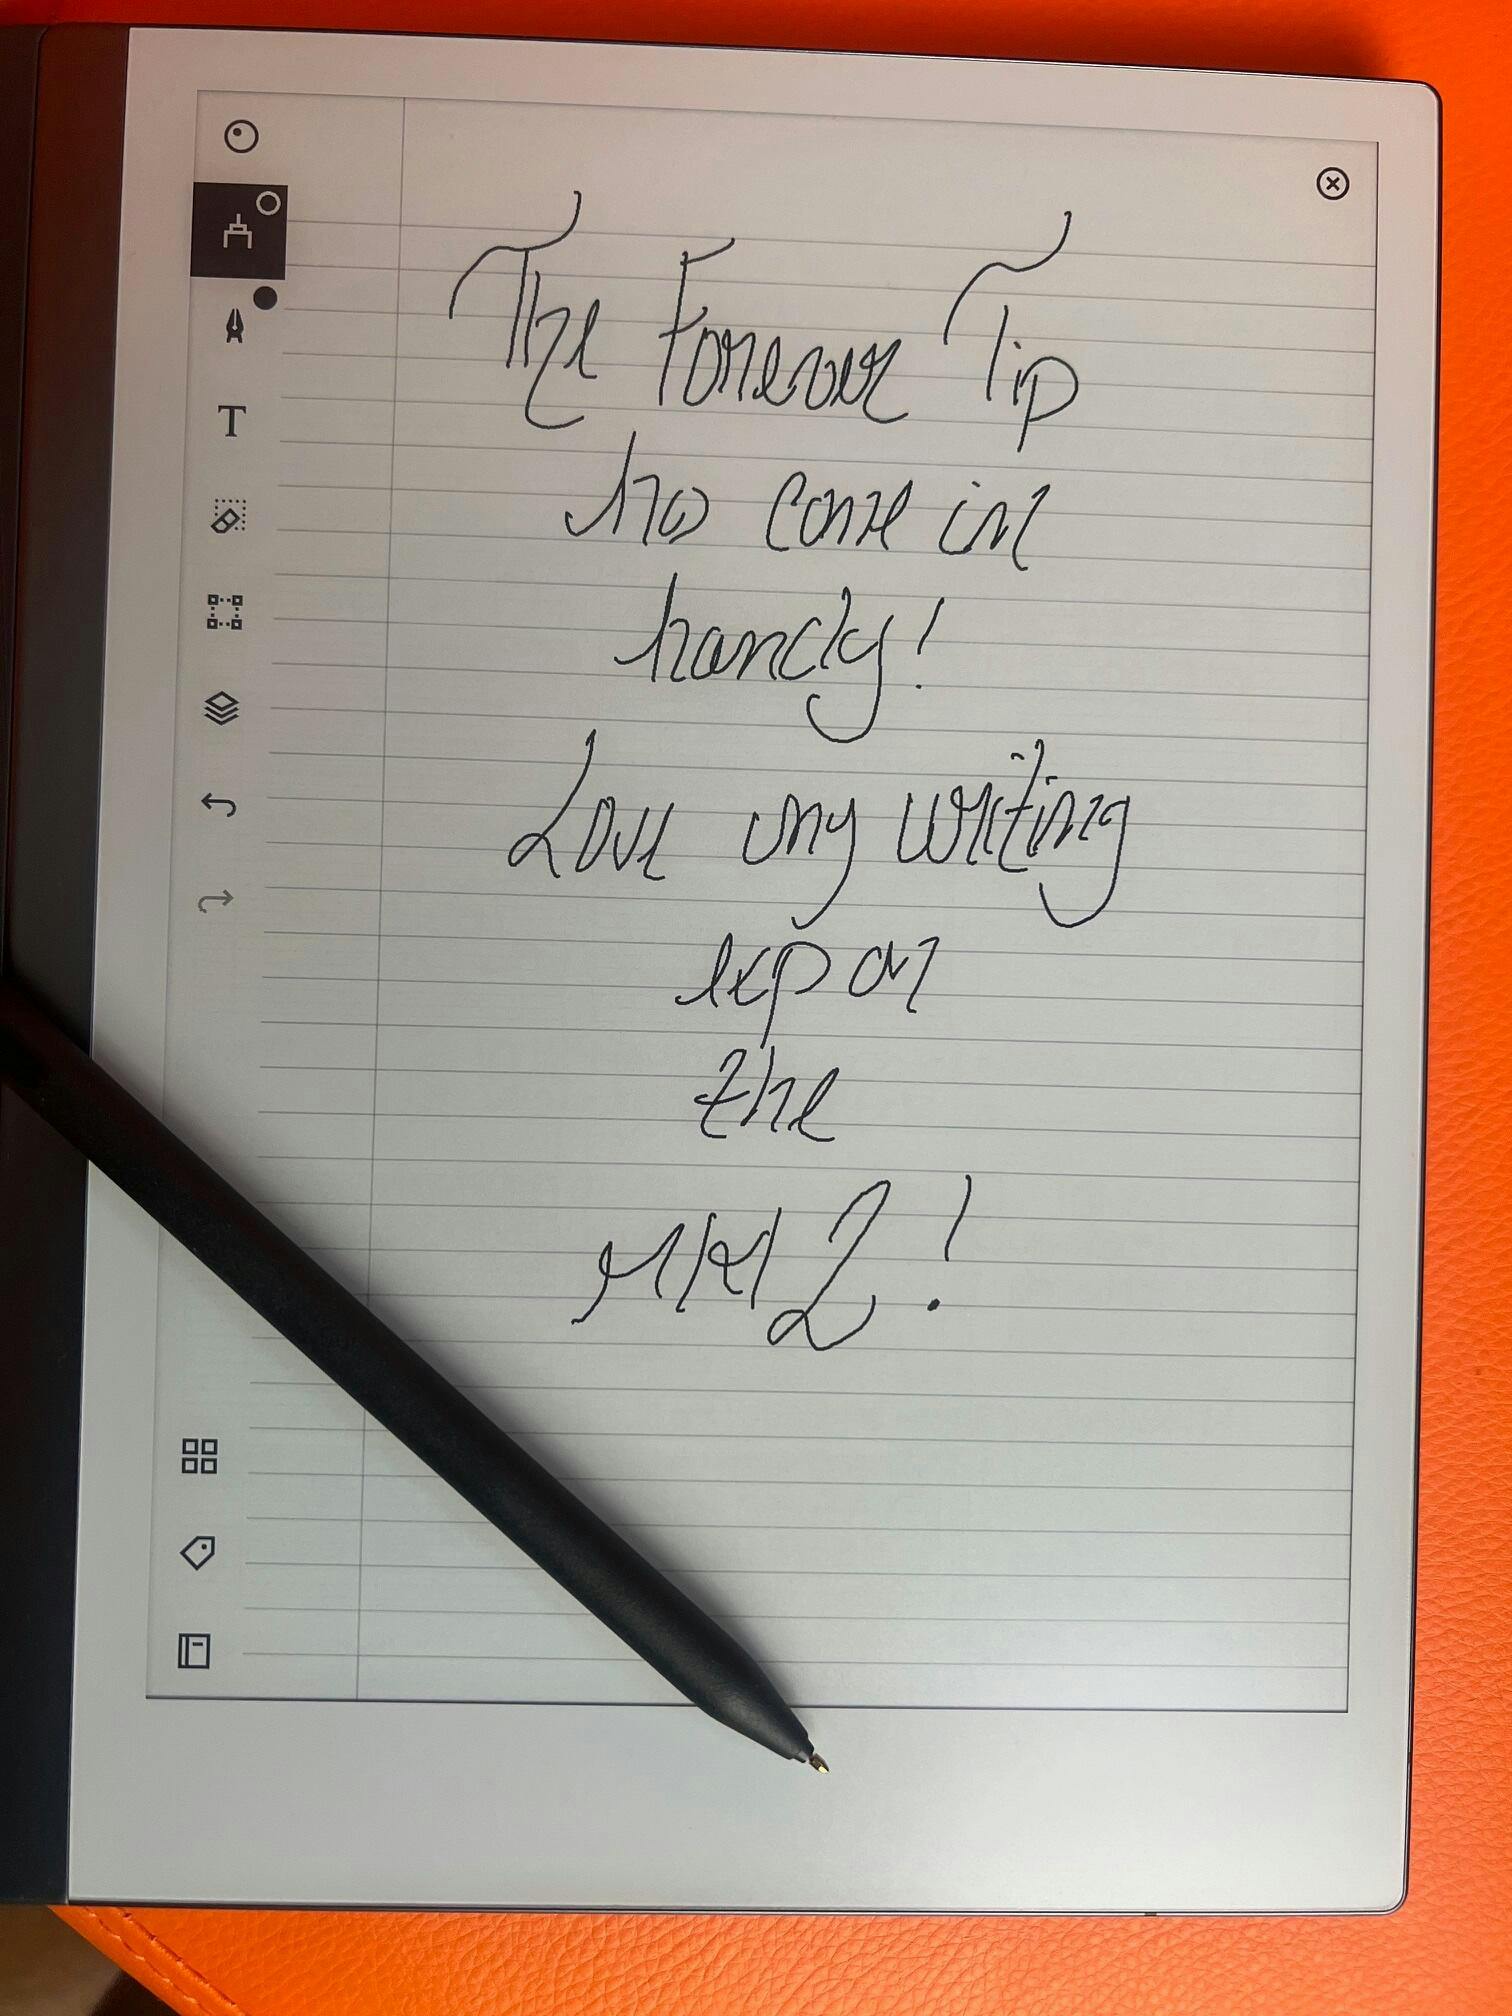 The Forever Tip
has come in
handy!
Love my writing
exp on
the
2!